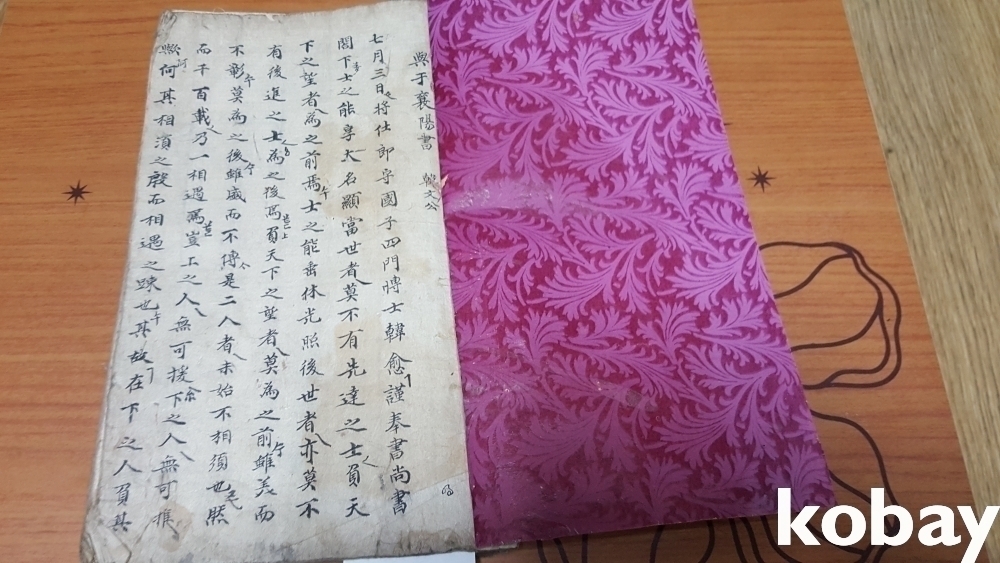 與于襄陽書 韓文公
七月三日將仕郎守國子四門博士韓愈謹奉書尚書
閤下士之能享大名顯當世者莫不有先達之士負天
下之望者為之前焉士之能垂休光照後世者亦莫不
有後進之士為之後焉負天下之望者莫為之前雖美而
不彰莫為之後雖盛而不傳是二人者未始不相須也然
而千百載乃一相遇焉豈上之人無可援下之人無可推
歟何其相須之殷而相遇之踈也其故在下之人負其
kobay